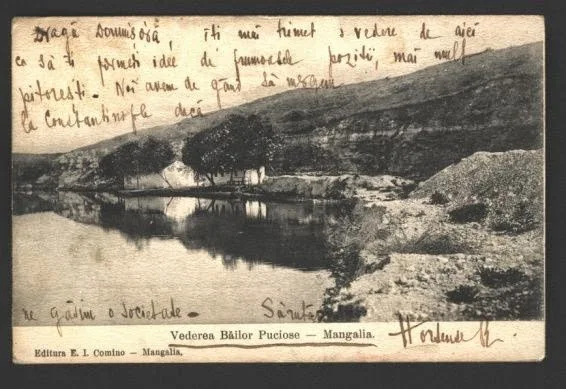 Dragă Domnișóră, îți mai trimet o vedere de aici
ca să-ți formeți idee de frumoasele poziții, mai mult
pitorești. Noi avem de gând să mergem
la Constantinople dacă
ne găsim o societate. Sărutări
Hortense
Vederea Băilor Puciose — Mangalia.
Editura E. I. Comino — Mangalia.